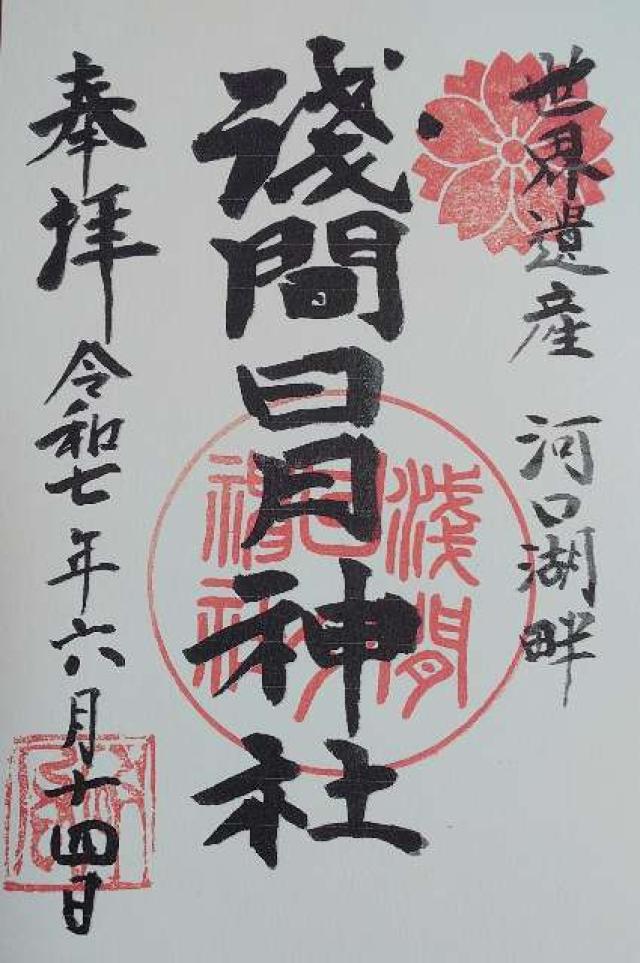 世界遺産 河口湖畔
淺間日月神社
淺間日月神社
奉拝 令和七年六月十四日